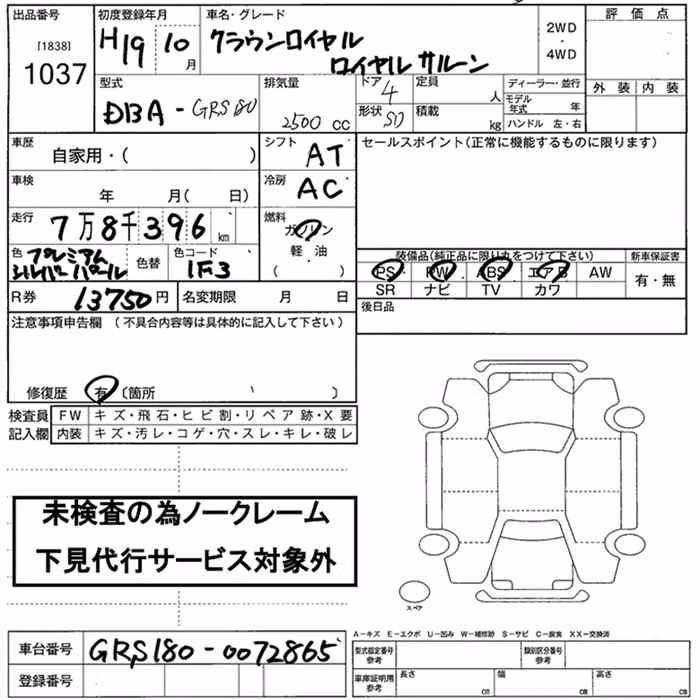 出品番号 初度登録年月 車名・グレード 2WD・4WD 評価点
[1838] 1037 H19 10月 クラウンロイヤル
ロイヤルサルーン
外装 内装
型式 排気量 ドア 4 定員 人 ディーラー・並行
DBA-GRS180 2500 CC 形状 SD 積載 kg モデル年式 年
ハンドル 左・右
車歴 自家用・( ) シフト AT セールスポイント(正常に機能するものに限ります)
車検 年 月( 日) 冷房 AC
走行 7万8千396km 燃料 ガソリン
軽・油
( )
色 プレミアムシルバーパール 色替 色コード 1F3
装備品(純正品に限り丸をつけて下さい) 新車保証書
PS PW ABS エアB AW 有・無
SR ナビ TV カワ
R券 13750円 名変期限 月 日 後日品
注意事項申告欄 (不具合内容等は具体的に記入して下さい)
修復歴 有 (箇所 )
検査員 FW キズ・飛石・ヒビ割・リペア跡・X要
記入欄 内装 キズ・汚レ・コゲ・穴・スレ・キレ・破レ
未検査の為ノークレーム
下見代行サービス対象外
スペア
A-キズ E-エクボ U-凹み W-補修跡 S-サビ C-腐食 XX-交換済
車台番号 GRS180-0072865 型式指定番号参考 類別区分番号参考
登録番号 車庫証明用参考 長さ cm 幅 cm 高さ cm